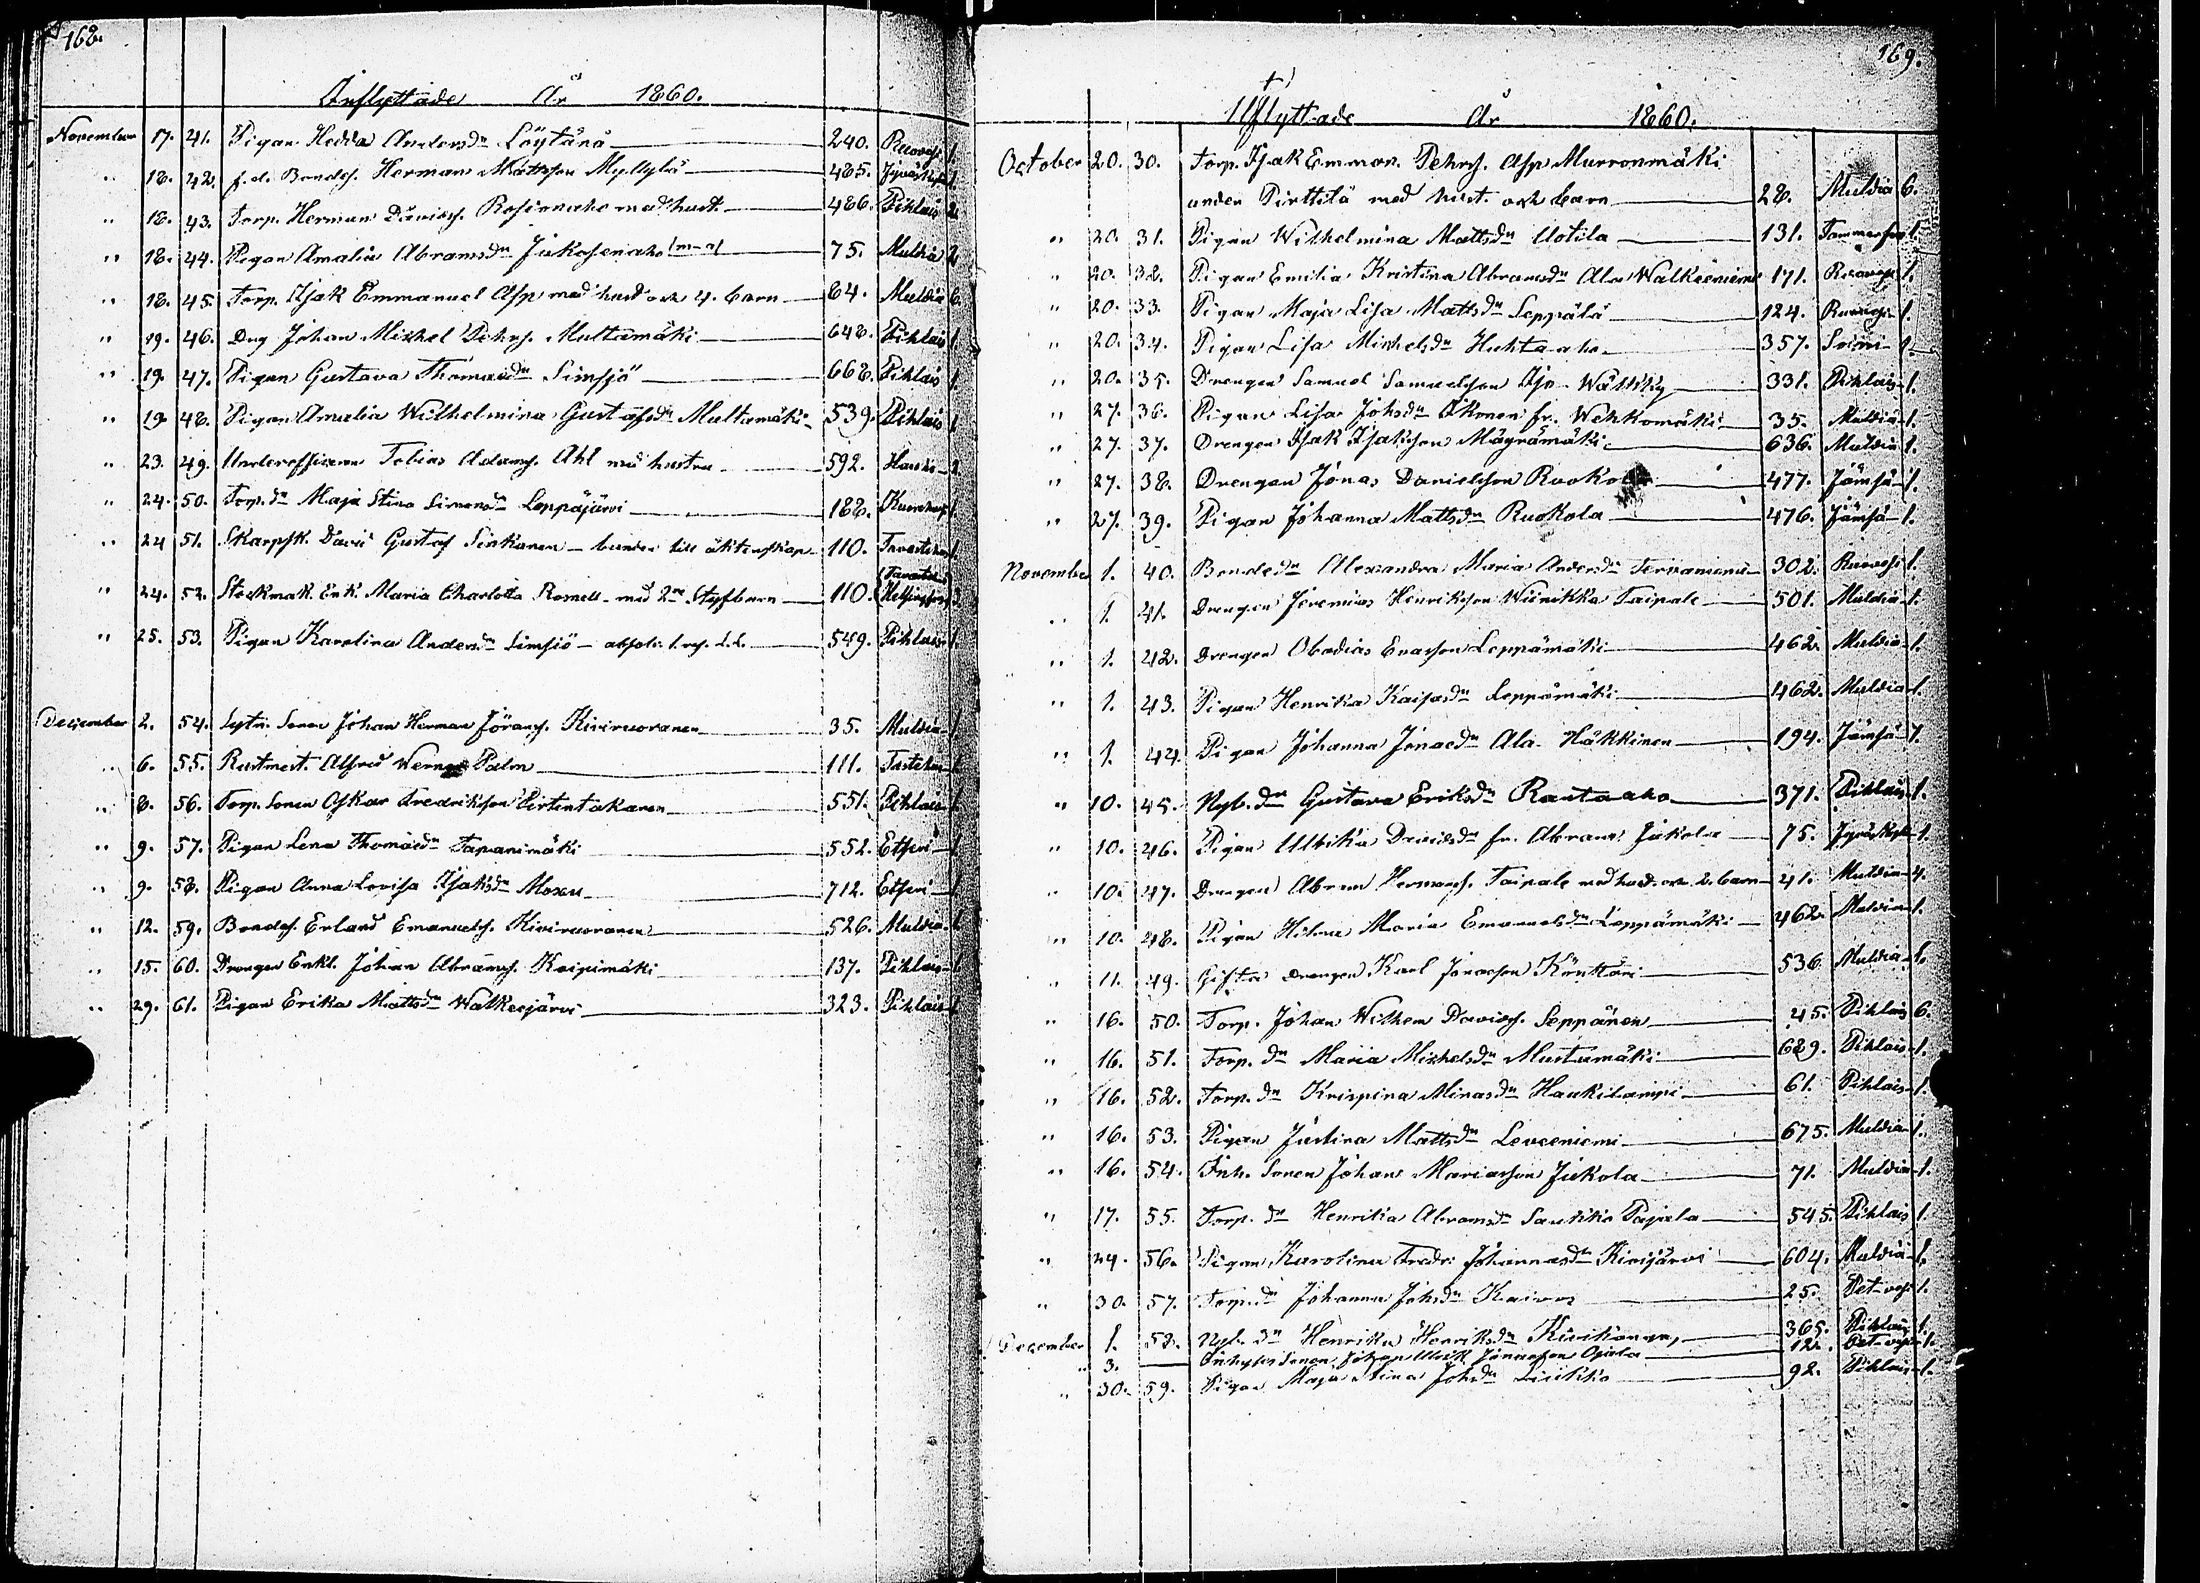 168.
Inflyttade År 1860.
November 17. 41. Pigan Hedda Andersdr Löytänä 240. Ruoves. 1.
" 18. 42. f.d. Bondes. Herman Mattsson Myllylä 485. Jyväskyl. 1.
" 18. 43. Torp. Herman Davids. med hust. 486. Pihlais 2.
" 18. 44. Pigan Amalia Abramsdr Jukosenaho 75. Multia 2.
" 18. 45. Torp. Isak Emmanuel Asp med hust och 4. barn 84. Muldia 6.
" 19. 46. Dng Johan Mickel Pehrs. Multamäki 648. Pihlais 1.
" 19. 47. Pigan Gustava Thomasdr Simsjö 668. Pihlais 1.
" 19. 48. Pigan Amalia Wilhelmina Gustafsdr Multamäki 539. Pihlais 1.
" 23. 49. Underofficeren Tobias Adams. Ahl med hustru 592. 2
" 24. 50. Torp. dr Maja Stina Simonsdr Leppäjärvi 188. 1.
" 24 51. Skarpsk. David Gustaf Sinkonen – bunden till äktenskap 110. Tavasteh. 1.
" 24. 52. Enk. Maria Charlotta med 2ne Styfbarn 110. (Tavasteh.) Helsingfors 3
" 25. 53. Pigan Karolina Andersdr Simsiö 549. Pihlais 1.
December 2. 54. Sytn. Sonen Johan Herman Jörans. Kiviruoranen 35. Muldia 1.
" 6. 55. Rustmest. Alfred Werner Palm 111. Tasteh. 1.
" 8. 56. Torp. Sonen Oskar Fredrikson Pirtintakanen 551. Pihlais 1.
" 9. 57. Pigan Lena Thomasdr Tapanimäki 552. Etseri 1.
" 9. 58. Pigan Anna Lovisa Isaksdr Moxu 712. Etseri 1.
" 12. 59. Bondes. Erland Emanuels. Kiviruoranen 526. Muldia 1.
" 15. 60. Drengen Enkl. Johan Abrams. Kaipimäki 137. Pihlais 1.
" 29. 61. Pigan Erika Mattsdr Walkeejärvi 323. Pihlais 1.
169.
Utflyttade År 1860.
October 20. 30. Torp. Isak Emman. Pehrs. Asp Murronmäki
under Pirttilä med hust. och barn 28. Muldia 6.
" 20. 31. Pigan Wilhelmina Mattsdr Uotila 131. Tammerfors 1.
" 20. 32. Pigan Emilia Kristina Abramsdr Ala Walkeeniemi 171. Ruoves. 1.
" 20. 33. Pigan Maja Lisa Mattsdr Seppälä 124. Ruoves. 1.
" 20. 34. Pigan Lisa Mickelsdr Huhtaaho 357. Soini 1.
" 20. 35. Drengen Samuel Samuelsson Iso-Wälikky 331. Pihlais 1.
" 27. 36. Pigan Lisa Johsdr Ökonen fr. Wehkomäki 35. Muldia 1.
" 27. 37. Drengen Isak Isaksson Mägrämäki 636. Muldia 1.
" 27. 38. Drengen Jonas Danielsson Ruokola 477. Jämsä 1.
" 27. 39. Pigan Johanna Mattsdr Ruokola 476. Jämsä 1.
November 1. 40. Bondedr Alexandra Maria Andersdr Tervaniemi 302. Ruoves. 1.
" 1. 41. Drengen Jeremias Henriksson Wienikka Taipale 501. Muldia 1.
" 1. 42. Drengen Obadias Evasson Leppämäki 462. Muldia 1.
" 1. 43. Pigan Henrika Kaisasdr Leppämäki 462. Muldia 1.
" 1. 44. Pigan Johanna Jonasdr Ala-Häkkinen 194. Jämsä 1.
" 10. 45. Nyb. dr Gustava Eriksdr Rautaaho 371. Pihlais 1.
" 10. 46. Pigan Ulrika Davidsdr fr. Abrams Jukola 75. Jyväskyl. 1.
" 10. 47. Drengen Abram Hermans. Taipale med hust. och 2. barn 41. Muldia 4.
" 10. 48. Pigan Hilma Maria Emanuelsdr Leppämäki 462. Muldia 1.
" 11. 49. Gifta drengen Karl Jonasson Könttäri 536. Muldia 1.
" 16. 50. Torp. Johan Wilhem Davids. Seppänen 45. Pihlais 6.
" 16. 51. Torp. dr Maria Mickelsdr Mustamäki 689. Pihlais 1.
" 16. 52. Torp. dr Krispina Minasdr Haukilampi 61. Pihlais 1.
" 16. 53. Pigan Justina Mattsdr Leveeniemi 675. Muldia 1.
" 16. 54. Inh. Sonen Johan Mariasson Jukola 71. Muldia 1.
" 17. 55. Torp. dr Henrika Abramsdr Pajala 545. Pihlais 1.
" 24. 56. Pigan Karolina Fredr. Johannasdr Kivijärvi 604. Muldia 1.
" 30. 57. Torp. dr Johanna Johsdr Kaivos 25. Pet-ves. 1.
December 1. 58. Nyb. dr Henrika Henriksdr Kivikangas 365. Pihlais 1.
" 3. — Inhyses Sonen Johan Ulrik Jonasson Ojala 12. Pet-ves. 1.
" 30. 59. Pigan Maja Stina Johsdr 92. Pihlais 1.